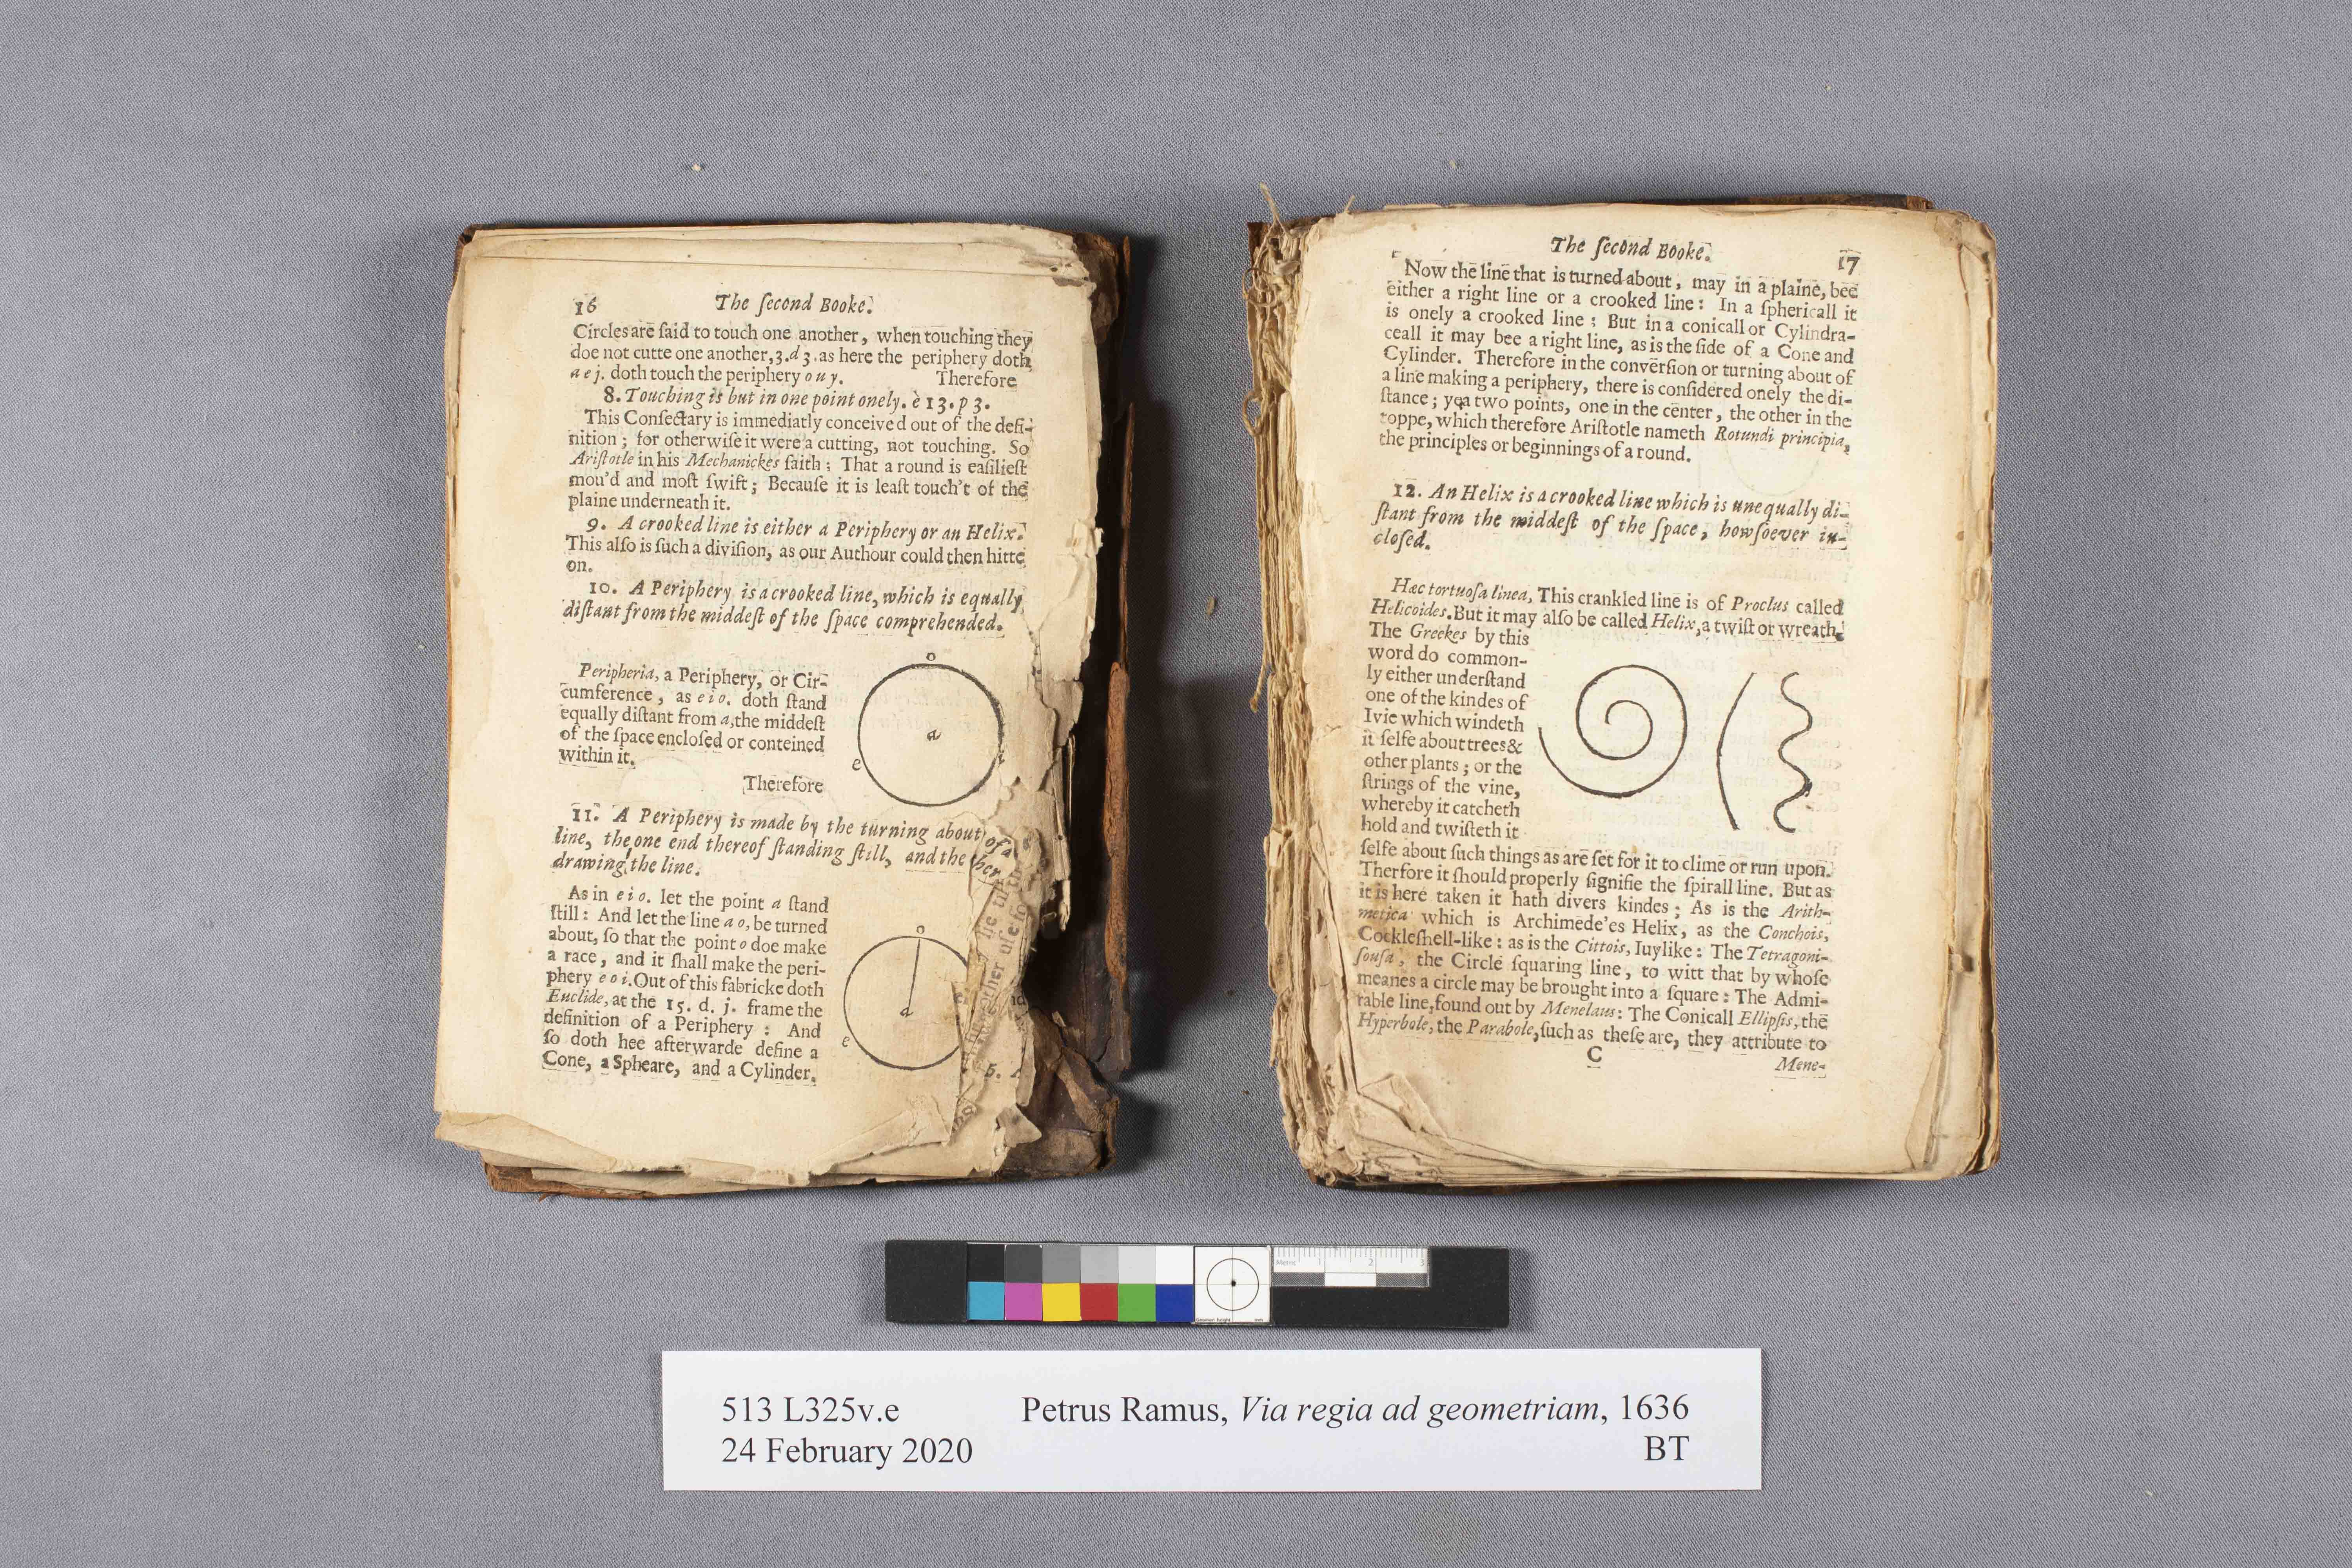 16 The ſecond Booke.
Circles are ſaid to touch one another, when touching they
doe not cutte one another, 3. d 3. as here the periphery doth
a e j. doth touch the periphery o u y. Therefore
8. Touching is but in one point onely. è 13. p 3.
This Conſectary is immediatly conceived out of the defi-
nition; for otherwiſe it were a cutting, not touching. So
Ariſtotle in his Mechanickes ſaith; That a round is eaſilieſt
mou'd and moſt ſwift; Becauſe it is leaſt touch't of the
plaine underneath it.
9. A crooked line is either a Periphery or an Helix.
This alſo is ſuch a diviſion, as our Authour could then hitte
on.
10. A Periphery is a crooked line, which is equally
diſtant from the middeſt of the ſpace comprehended.
Peripheria, a Periphery, or Cir-
cumference, as e i o. doth ſtand
equally diſtant from a, the middeſt
of the ſpace encloſed or conteined
within it.
Therefore
o
a
e
11. A Periphery is made by the turning about of a
line, the one end thereof ſtanding ſtill, and the ther
drawing the line.
As in e i o. let the point a ſtand
ſtill: And let the line a o, be turned
about, ſo that the point o doe make
a race, and it ſhall make the peri-
phery e o i. Out of this fabricke doth
Euclide, at the 15. d. j. frame the
definition of a Periphery: And
ſo doth hee afterwarde define a
Cone, a Spheare, and a Cylinder.
o
a
e
other uſe
5.
The ſecond Booke. 17
Now the line that is turned about, may in a plaine, bee
either a right line or a crooked line: In a ſphericall it
is onely a crooked line; But in a conicall or Cylindra-
ceall it may bee a right line, as is the ſide of a Cone and
Cylinder. Therefore in the converſion or turning about of
a line making a periphery, there is conſidered onely the di-
ſtance; yea two points, one in the center, the other in the
toppe, which therefore Ariſtotle nameth Rotundi principia,
the principles or beginnings of a round.
12. An Helix is a crooked line which is unequally di-
ſtant from the middeſt of the ſpace, howſoever in-
cloſed.
Hæc tortuoſa linea, This crankled line is of Proclus called
Helicoides. But it may alſo be called Helix, a twiſt or wreath.
The Greekes by this
word do common-
ly either underſtand
one of the kindes of
Ivie which windeth
it ſelfe about trees &
other plants; or the
ſtrings of the vine,
whereby it catcheth
hold and twiſteth it
ſelfe about ſuch things as are ſet for it to clime or run upon.
Therfore it ſhould properly ſignifie the ſpirall line. But as
it is here taken it hath divers kindes; As is the Arith-
metica which is Archimede'es Helix, as the Conchois,
Cockleſhell-like: as is the Cittois, Iuylike: The Tetragoni-
ſouſa, the Circle ſquaring line, to witt that by whoſe
meanes a circle may be brought into a ſquare: The Admi-
rable line, found out by Menelaus: The Conicall Ellipſis, the
Hyperbole, the Parabole, ſuch as theſe are, they attribute to
C Mene-
Metric 1 2 3
513 L325v.e Petrus Ramus, Via regia ad geometriam, 1636
24 February 2020 BT